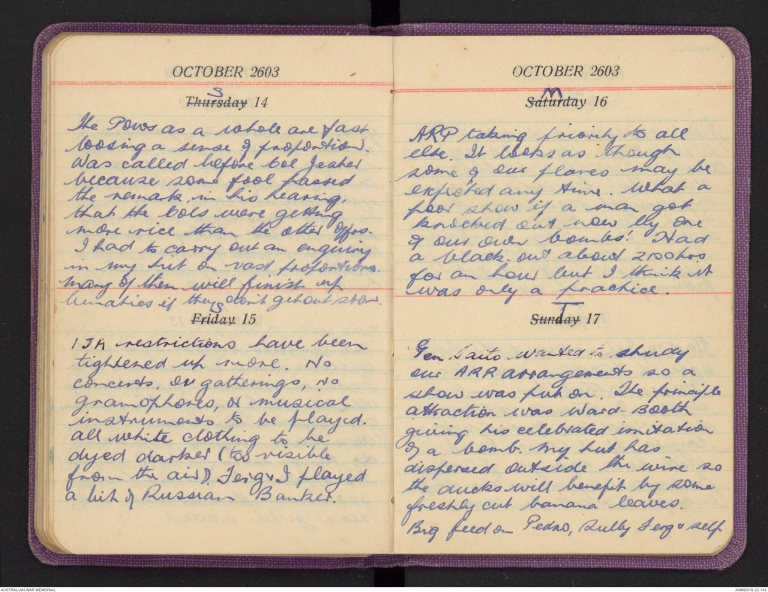 OCTOBER 2603
S
Thursday 14
The POWs as a whole are fast
loosing a sense of proportion.
Was called before Col
because some fool passed
the remark, in his hearing,
that the Cols were getting
more rice than the other offrs.
I had to carry out an enquiry
in my hut on vast proportions.
Many of them will finish up
lunatics if they don't get out soon.
S
Friday 15
IJA restrictions have been
tightened up more. No
concerts, or gatherings, no
gramophones, or musical
instruments to be played.
All white clothing to be
dyed darker (too visible
from the air). Ferg & I played
a bit of Russian Banker.
OCTOBER 2603
M
Saturday 16
ARP taking priority to all
else. It looks as though
some of our planes may be
expected any time. What a
poor show if a man got
knocked out now by one
of our own bombs! Had
a black-out about 2100hrs
for an hour but I think it
was only a practice.
T
Sunday 17
Gen. Saito wanted to study
our ARP arrangements so a
show was put on. The principle
attraction was Ward-Booth
giving his celebrated imitation
of a bomb. My hut has
dispersed outside the wire so
the ducks will benefit by some
freshly cut banana leaves.
Big feed on Pedro, Sully Ferg & self
AUSTRALIAN WAR MEMORIAL
AWM2019.22.142